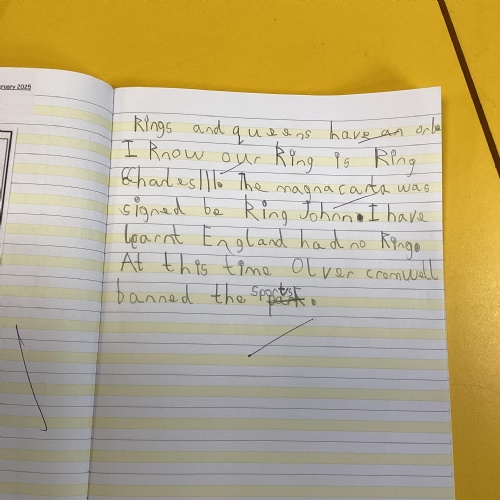 ruary 2025
Kings and queens have an orb
I Know our King is King
Charles III. The magna carta was
signed be King Johnn. I have
learnt England had no King.
At this time Oliver cromwell
banned the sports.